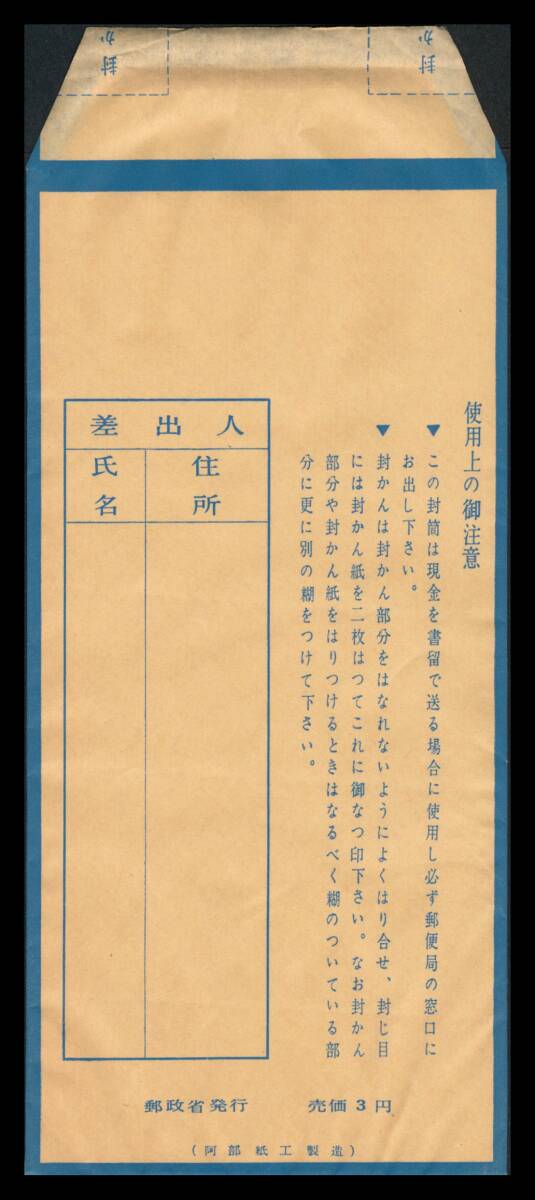 封か
封か
使用上の御注意
▼この封筒は現金を書留で送る場合に使用し必ず郵便局の窓口に
お出し下さい。
▼封かんは封かん部分をはなれないようによくはり合せ、封じ目
には封かん紙を二枚はつてこれに御なつ印下さい。なお封かん
部分や封かん紙をはりつけるときはなるべく糊のついている部
分に更に別の糊をつけて下さい。
差出人
住所
氏名
郵政省発行 売価3円
(阿部紙工製造)